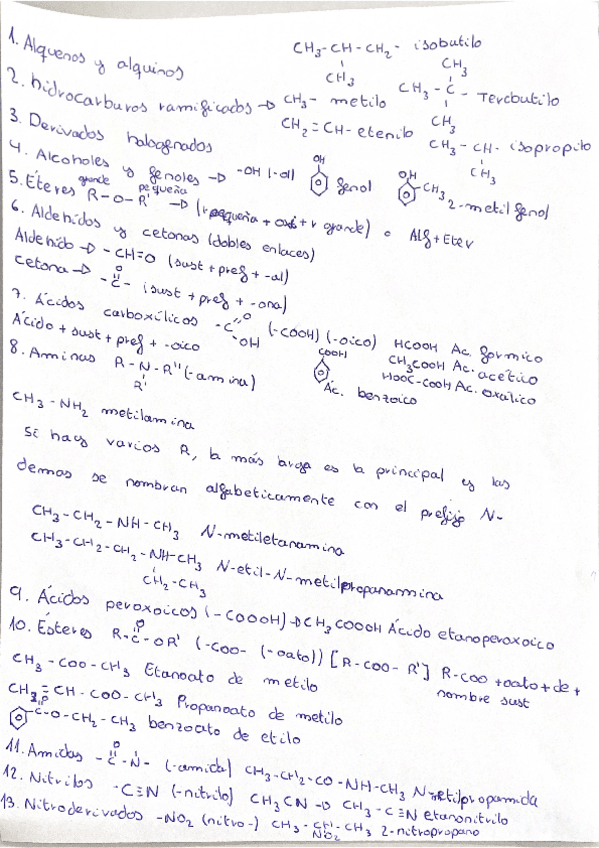 1. Alquenos y alquinos
CH3-CH-CH2- isobutilo
CH3
2. hidrocarburos ramificados → CH3- metilo
CH3
CH3-C- Tercbutilo
CH3
CH2=CH-etenilo
3. Derivados halogenados
CH3-CH- isopropilo
CH3
4. Alcoholes y fenoles → -OH (-ol)
OH
fenol
OH
CH3
2-metil fenol
5. Éteres
grande
pequeña
R-O-R' → (r pequeña + oxi + r grande) o Alf + Eter
6. Aldehídos y cetonas (dobles enlaces)
Aldehído → -CH=O (sust + pref + -al)
cetona → -C- (sust + pref + -ona)
O
7. Ácidos carboxílicos -C
O
OH
(-COOH) (-oico)
HCOOH Ac. fórmico
Ácido + sust + pref + -oico
COOH
Ác. benzoico
CH3COOH Ac. acético
HOOC-COOH Ac. oxálico
8. Aminas R-N-R'' (-amina)
R'
CH3-NH2 metilamina
Si hay varios R, la más larga es la principal y las
demas se nombran alfabeticamente con el prefijo N-
CH3-CH2-NH-CH3 N-metiletanamina
CH3-CH2-CH2-NH-CH3 N-etil-N-metilpropanamina
CH2-CH3
9. Ácidos peroxoicos (-COOOH) → CH3COOOH Ácido etanoperoxoico
10. Ésteres R-C-OR' (-COO- (-oato)) [R-COO-R'] R-COO + oato + de +
O
nombre sust
CH3-COO-CH3 Etanoato de metilo
CH2=CH-COO-CH3 Propanoato de metilo
O
-C-O-CH2-CH3 benzoato de etilo
11. Amidas -C-N- (-amida) CH3-CH2-CO-NH-CH3 N-metilpropamida
O
12. Nitrilos -C≡N (-nitrilo) CH3CN → CH3-C≡N etanonitrilo
13. Nitroderivados -NO2 (nitro-) CH3-CH-CH3 2-nitropropano
NO2